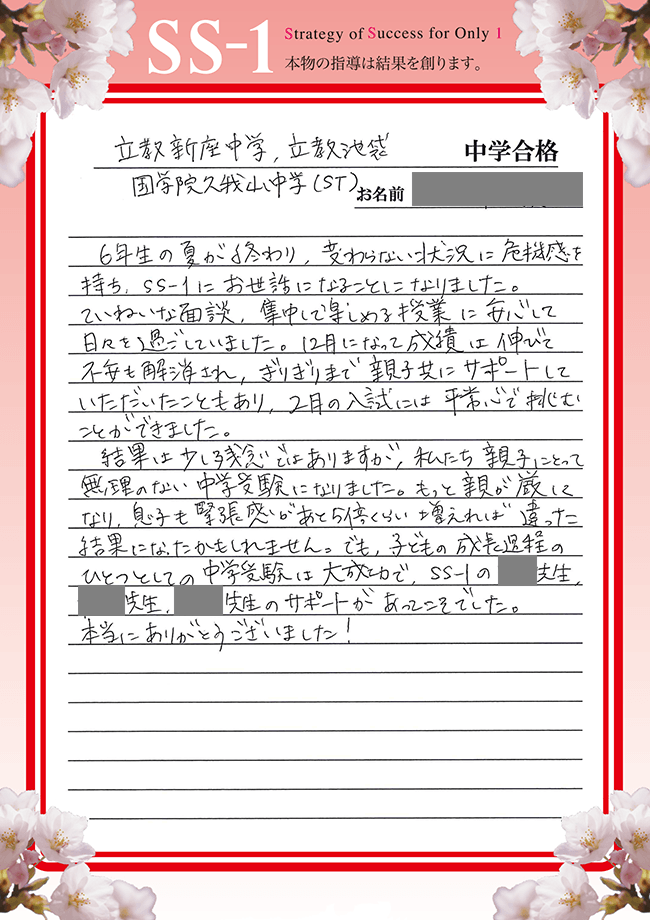 SS-1
Strategy of Success for Only 1
本物の指導は結果を創ります。
立教新座中学，立教池袋
中学合格
国学院久我山中学(ST)
お名前
6年生の夏が終わり，変わらない状況に危機感を
持ち，SS-1にお世話になることになりました。
ていねいな面談，集中して楽しめる授業に安心して
日々を過ごしていました。12月になって成績は伸びて
不安も解消され，ぎりぎりまで親子共にサポートして
いただいたこともあり，2月の入試には平常心で挑む
ことができました。
結果は少し残念ではありますが，私たち親子にとって
無理のない中学受験になりました。もっと親が厳しく
なり，息子も緊張感があと5倍くらい増えれば違った
結果になったかもしれません。でも，子どもの成長過程の
ひとつとしての中学受験は大成功で，SS-1の 先生，
先生， 先生のサポートがあってこそでした。
本当にありがとうございました！